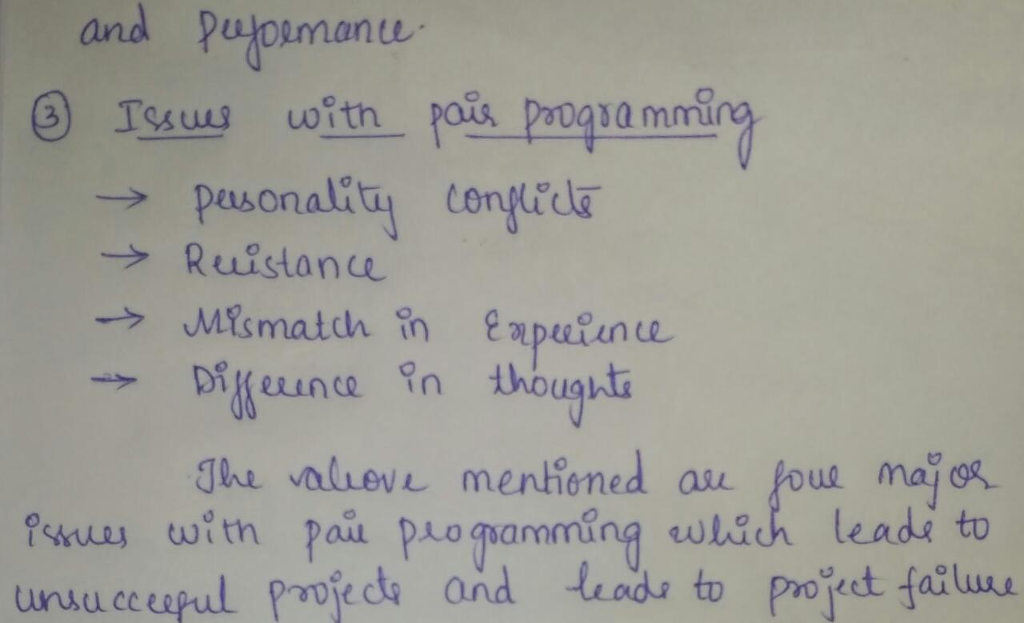 and Performance.
③ Issues with pair programming
→ personality conflicts
→ Resistance
→ Mismatch in Experience
→ Difference in thoughts
The above mentioned are four major
issues with pair programming which leads to
unsuccessful projects and leads to project failure